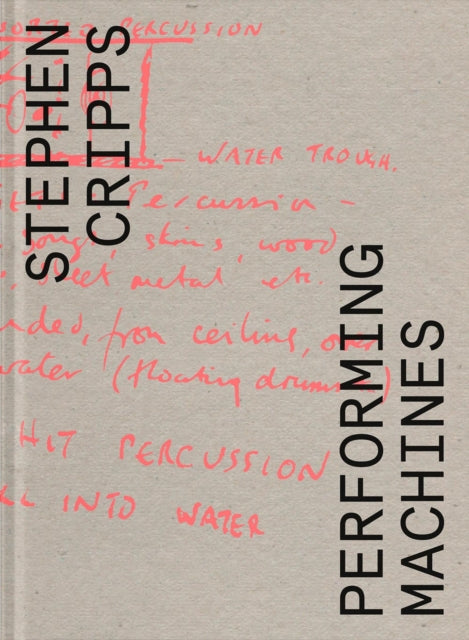 STEPHEN
CRIPPS
PERFORMING
MACHINES
PERCUSSION
— WATER TROUGH.
Percussion –
skins, wood
sheet metal etc.
from ceiling, over
water (floating drums)
HIT PERCUSSION
INTO WATER